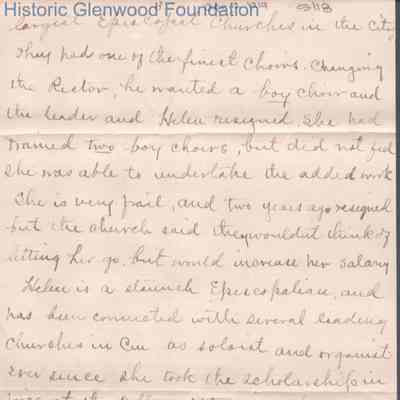 Historic Glenwood Foundation
largest Episcopal Churches in the city
They had one of the finest Choirs. Changing
the Rector, he wanted a boy choir and
the leader and Helen resigned, She had
trained two boy choirs, but did not feel
she was able to undertake the added work
She is very frail, and two years ago resigned
but the church said they wouldnt think of
letting her go, but would increase her salary
Helen is a staunch Episcopalian, and
has been connected with several leading
Churches in Cin as soloist and organist
ever since she took the scholarship in